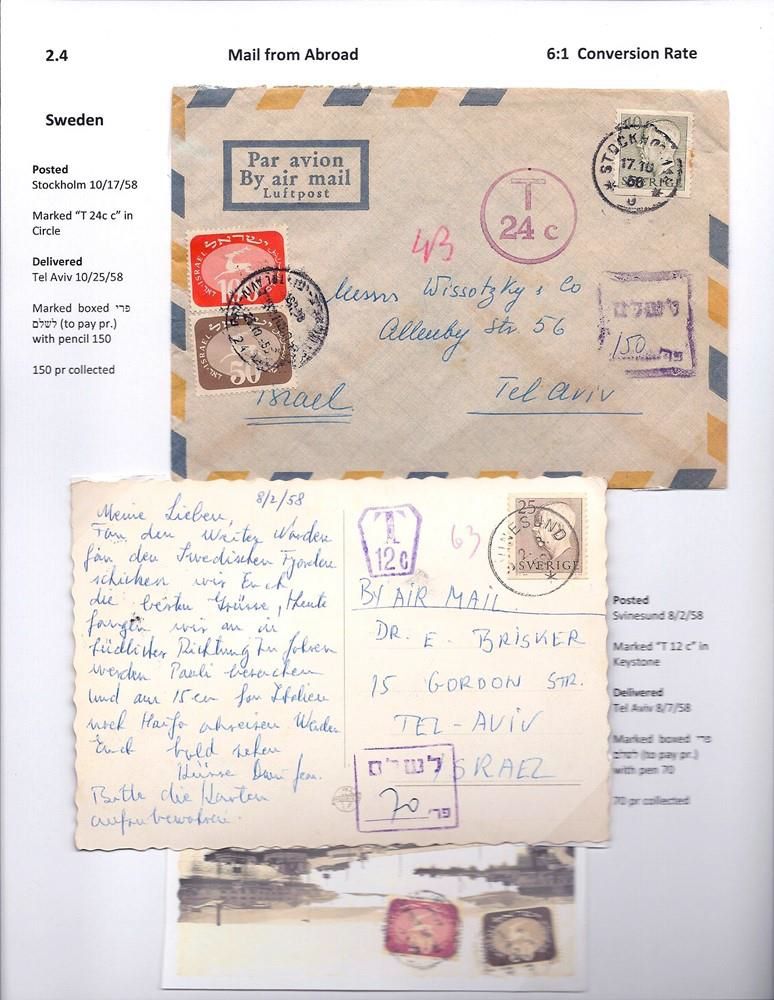 2.4 Mail from Abroad 6:1 Conversion Rate
Sweden
Posted
Stockholm 10/17/58
Marked "T 24c c" in
Circle
Delivered
Tel Aviv 10/25/58
Marked boxed פרי
לשלם (to pay pr.)
with pencil 150
150 pr collected
Par avion
By air mail
Luftpost
T
24 c
43
STOCKHOLM
17.10
SVERIGE
ישראל
ISRAEL
100
ישראל
ISRAEL
50
Messrs Wissotzky & Co
Allenby Str. 56
Tel Aviv
Israel
לשלם
150
פר'
8/2/58
Meine Lieben,
den
den Swedischen
schicken wir Euch
die besten Grüsse, Heute
fangen wir an in
südlicher Richtung zu fahren
werden Pauli besuchen
und am 15en
nach Haifa Werden
Euch bald sehen
Bitte die Karten
aufzubewahren.
T
12 c
63
SVINESUND
25
SVERIGE
BY AIR MAIL
DR. E. BRISKER
15 GORDON STR.
TEL-AVIV
ISRAEL
לשלם
70
פר'
Posted
Svinesund 8/2/58
Marked "T 12 c" in
Keystone
Delivered
Tel Aviv 8/7/58
Marked boxed פרי
לשלם (to pay pr.)
with pen 70
70 pr collected